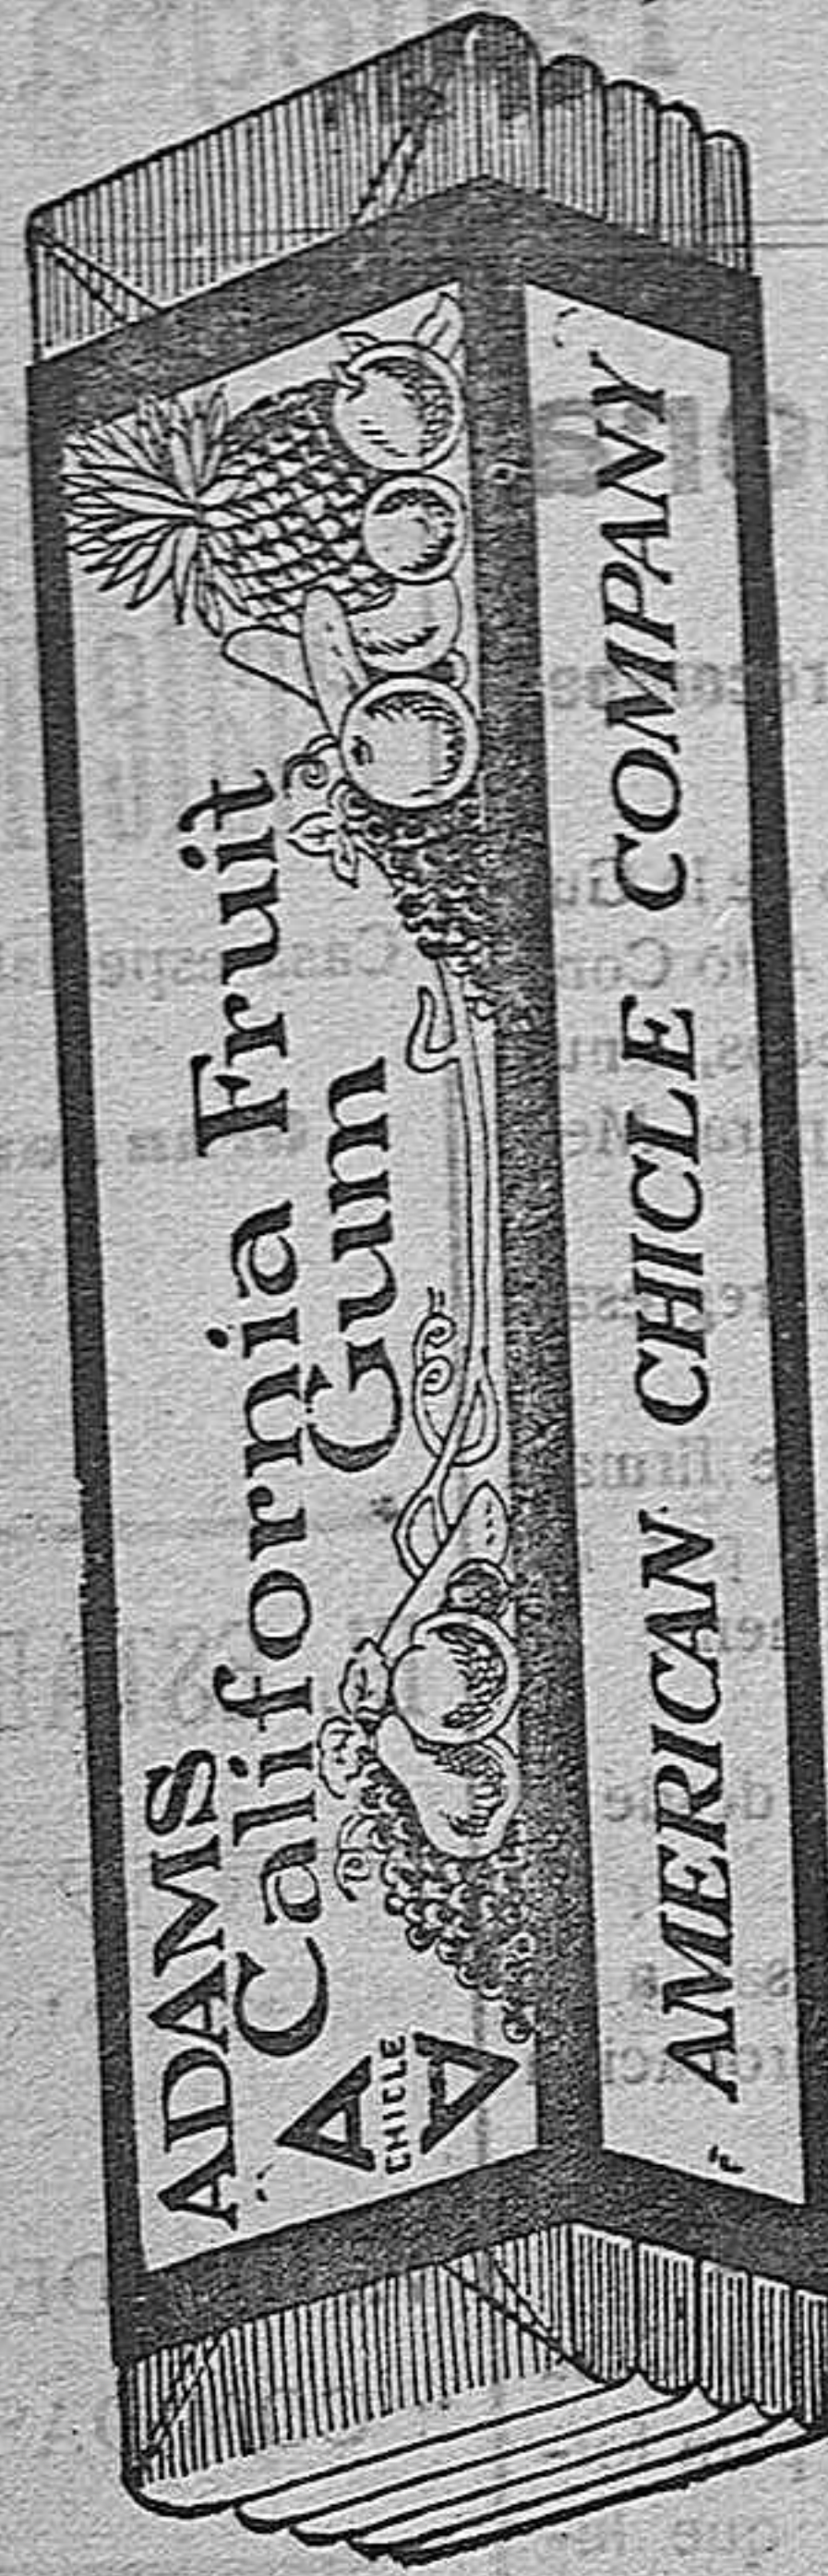 ADAMS
California Fruit
Gum
A
CHICLE
A
AMERICAN CHICLE COMPANY